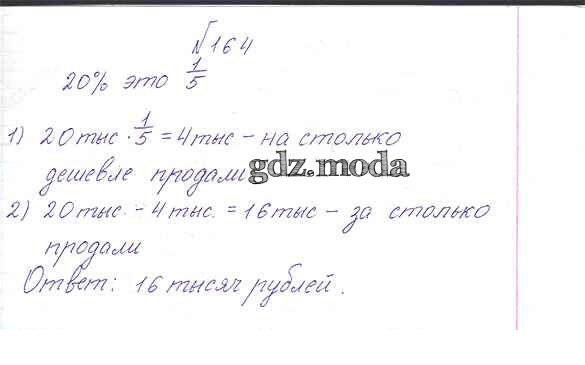 №164
20% это 1/5
1) 20 тыс · 1/5 = 4 тыс – на столько
дешевле продали
gdz.moda
2) 20 тыс. – 4 тыс. = 16 тыс – за столько
продали
Ответ: 16 тысяч рублей.